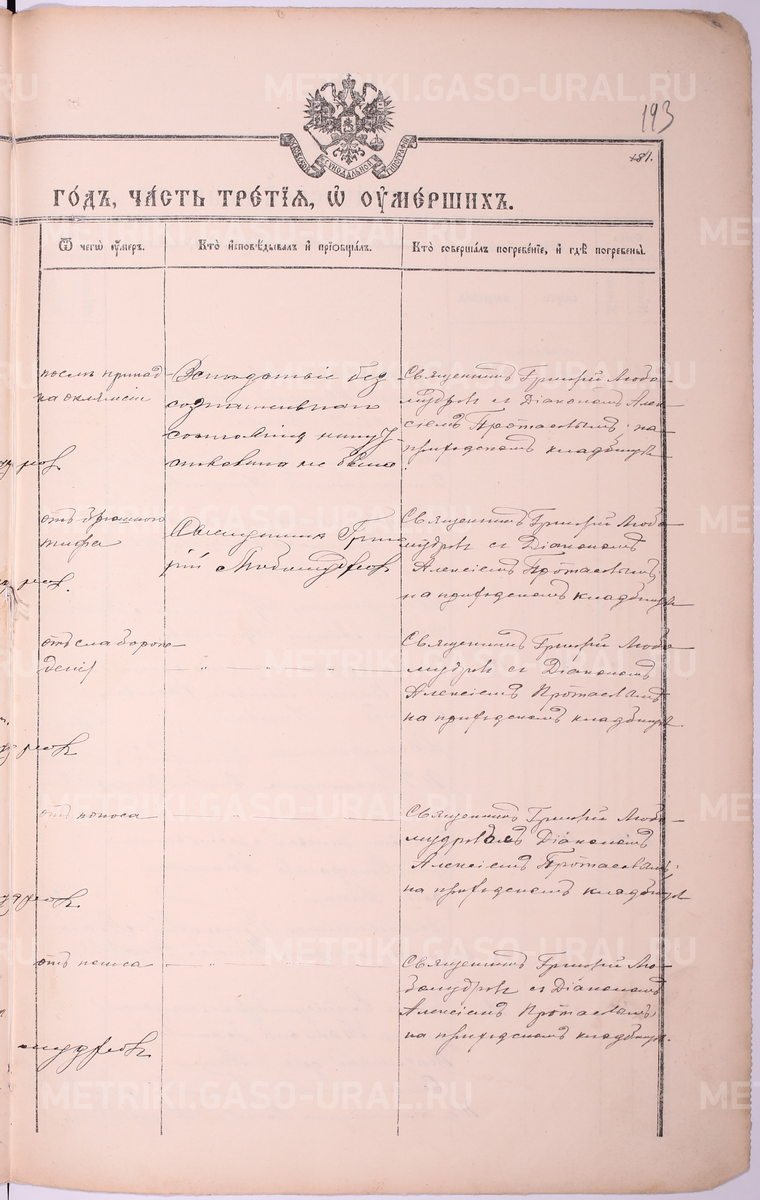 193
181.
МОСКОВСКОЙ СѴНОДАЛЬНОЙ ТИПОГРАФІИ
ГОДЪ, ЧАСТЬ ТРЕТІЯ, Ѡ ОУМЕРШИХЪ.
Ѿ чегѡ оумеръ.
Кто исповѣдывалъ и пріобщалъ.
Кто совершалъ погребеніе, и гдѣ погребены.
послѣ припад-
ка эклямсіи
безсознательнаго
состоянія
не было
Священникъ Григорій Любо-
мудровъ съ Діакономъ Алек-
сѣемъ Протасовымъ на
приходскомъ кладбищѣ
отъ брюшного
тифа
Священникъ Григо-
рій Любомудровъ
Священникъ Григорій Любо-
мудровъ съ Діакономъ
Алексіемъ Протасовымъ
на приходскомъ кладбищѣ
отъ слаборож-
денія
Священникъ Григорій Любо-
мудровъ съ Діакономъ
Алексіемъ Протасовымъ
на приходскомъ кладбищѣ
отъ поноса
Священникъ Григорій Любо-
мудровъ съ Діакономъ
Алексіемъ Протасовымъ
на приходскомъ кладбищѣ
отъ поноса
Священникъ Григорій Лю-
бомудровъ съ Діакономъ
Алексіемъ Протасовымъ
на приходскомъ кладбищѣ.
мудровъ
METRIKI.GASO-URAL.RU